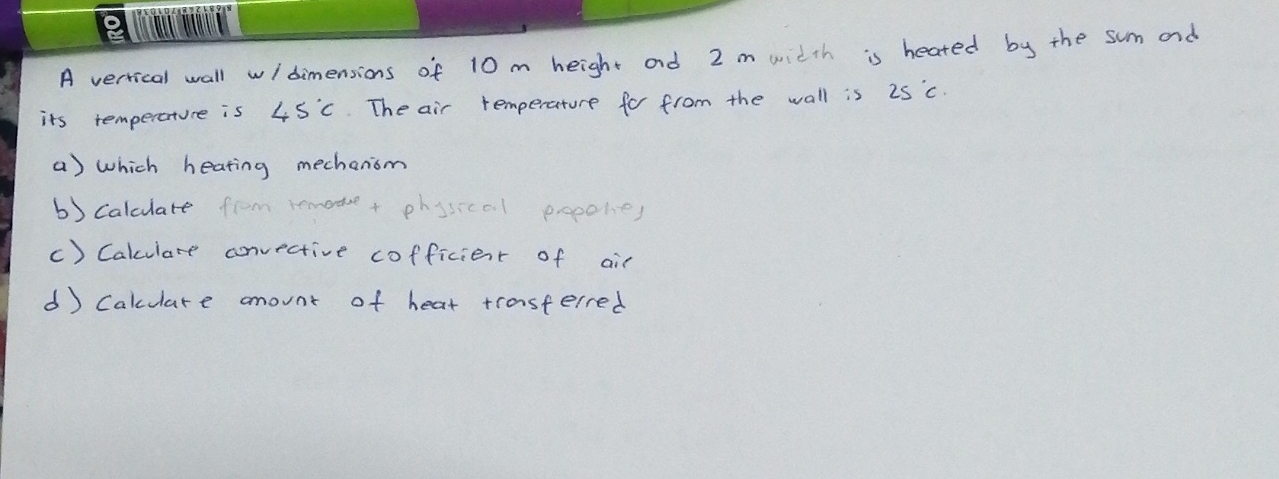 IRO
8681248701036
A vertical wall w/dimensions of 10 m height and 2 m width is heated by the sum and
its temperature is 45°C. The air temperature for from the wall is 25°C.
a) Which heating mechanism
b) Calculate from + physical
c) Calculate convective cofficient of air
d) Calculate amount of heat transferred